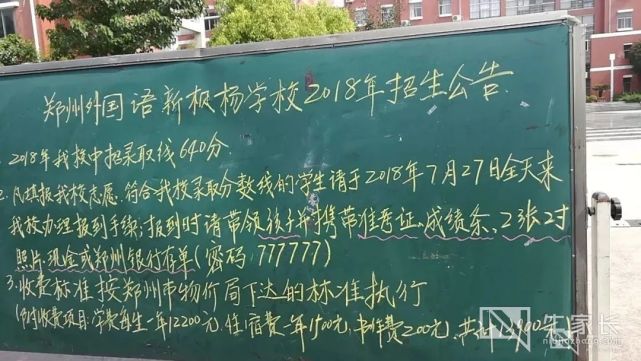 郑州外国语新枫杨学校2018年招生公告
1. 2018年我校中招录取线640分
2. 凡填报我校志愿、符合我校录取分数线的学生请于2018年7月27日全天来
我校办理报到手续;报到时请带领孩子并携带准考证、成绩条、2张2寸
照片、现金或郑州银行存单(密码:777777)
3. 收费标准按郑州市物价局下达的标准执行
学费每生一年12200元,住宿费一年1500元,书杂费200元,共计13900元
牛家长
niujiazhang.com